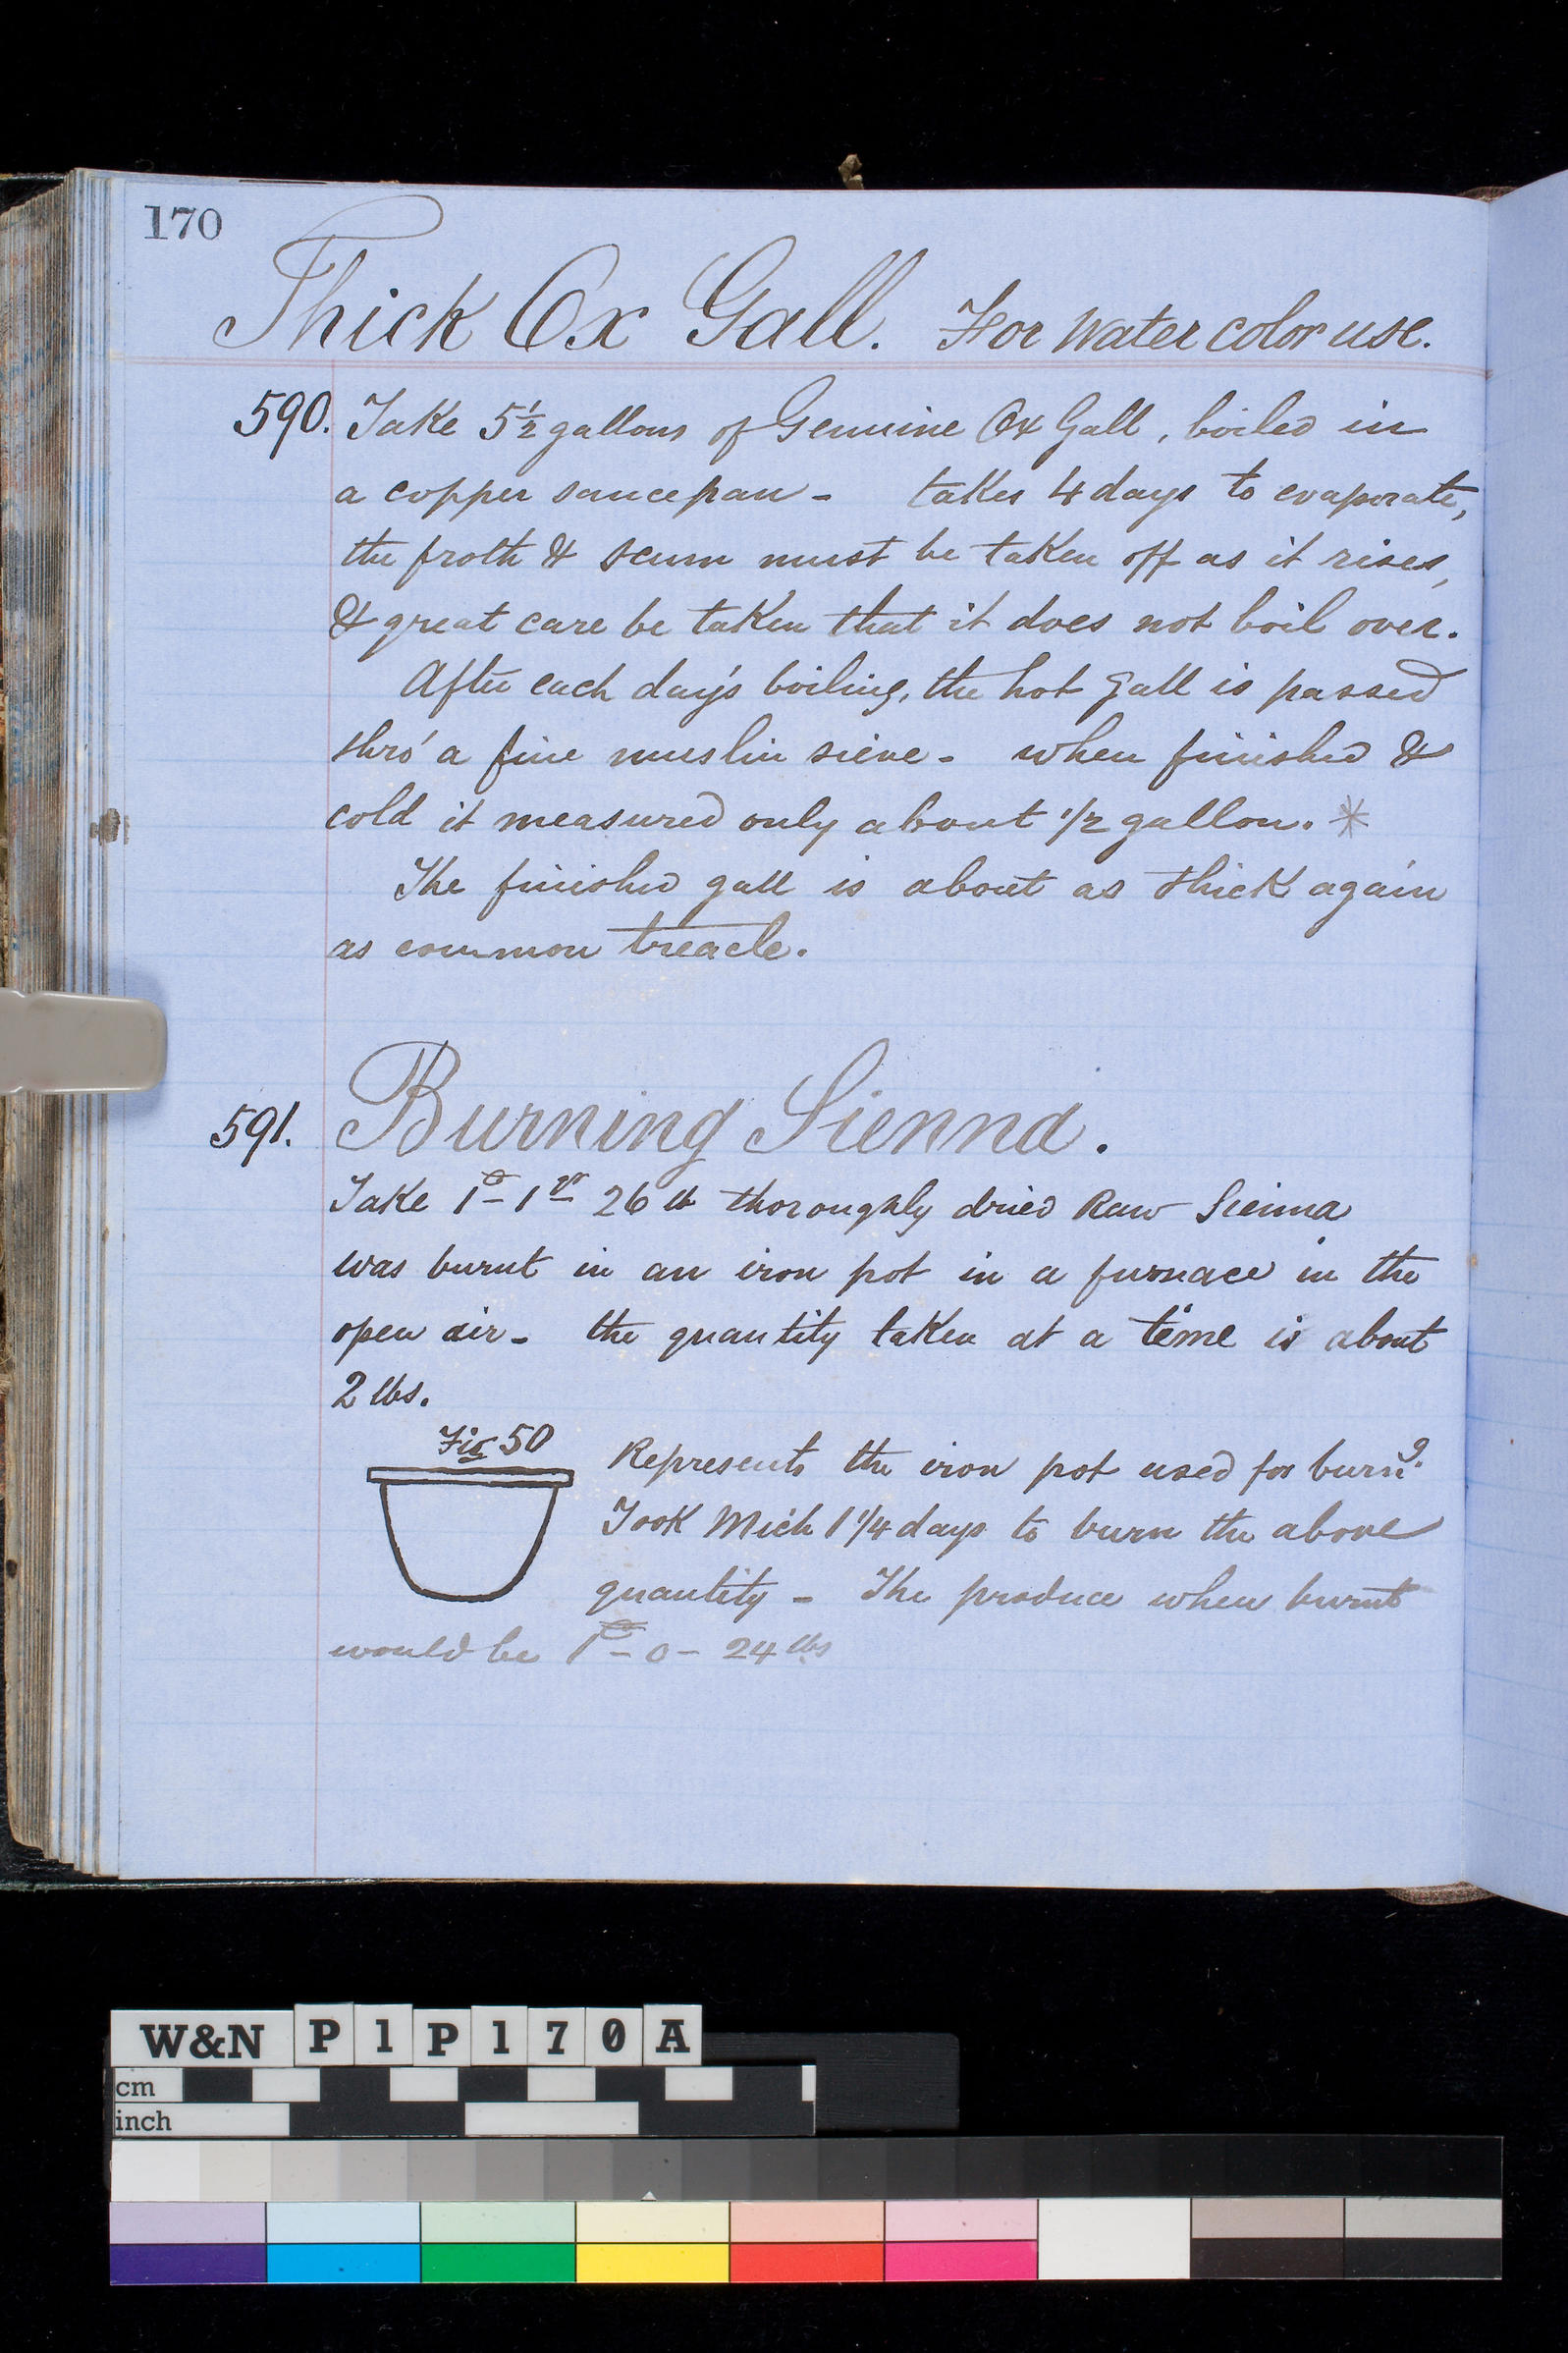 170
Thick Ox Gall. For Water color use.
590. Take 5½ gallons of Genuine Ox Gall, boiled in
a copper saucepan - takes 4 days to evaporate,
the froth & scum must be taken off as it rises,
& great care be taken that it does not boil over.
After each day's boiling, the hot gall is passed
thro' a fine muslin sieve - when finished &
cold it measured only about 1/2 gallon. *
The finished gall is about as thick again
as common treacle.
591. Burning Sienna.
Take 1c - 1qr 26 lb thoroughly dried Raw Sienna
was burnt in an iron pot in a furnace in the
open air - the quantity taken at a time is about
2 lbs.
Fig 50
Represents the iron pot used for burng.
Took Mich 1 1/4 days to burn the above
quantity - The produce when burnt
would be 1c - 0 - 24 lbs
W&N P1P170A
cm
inch